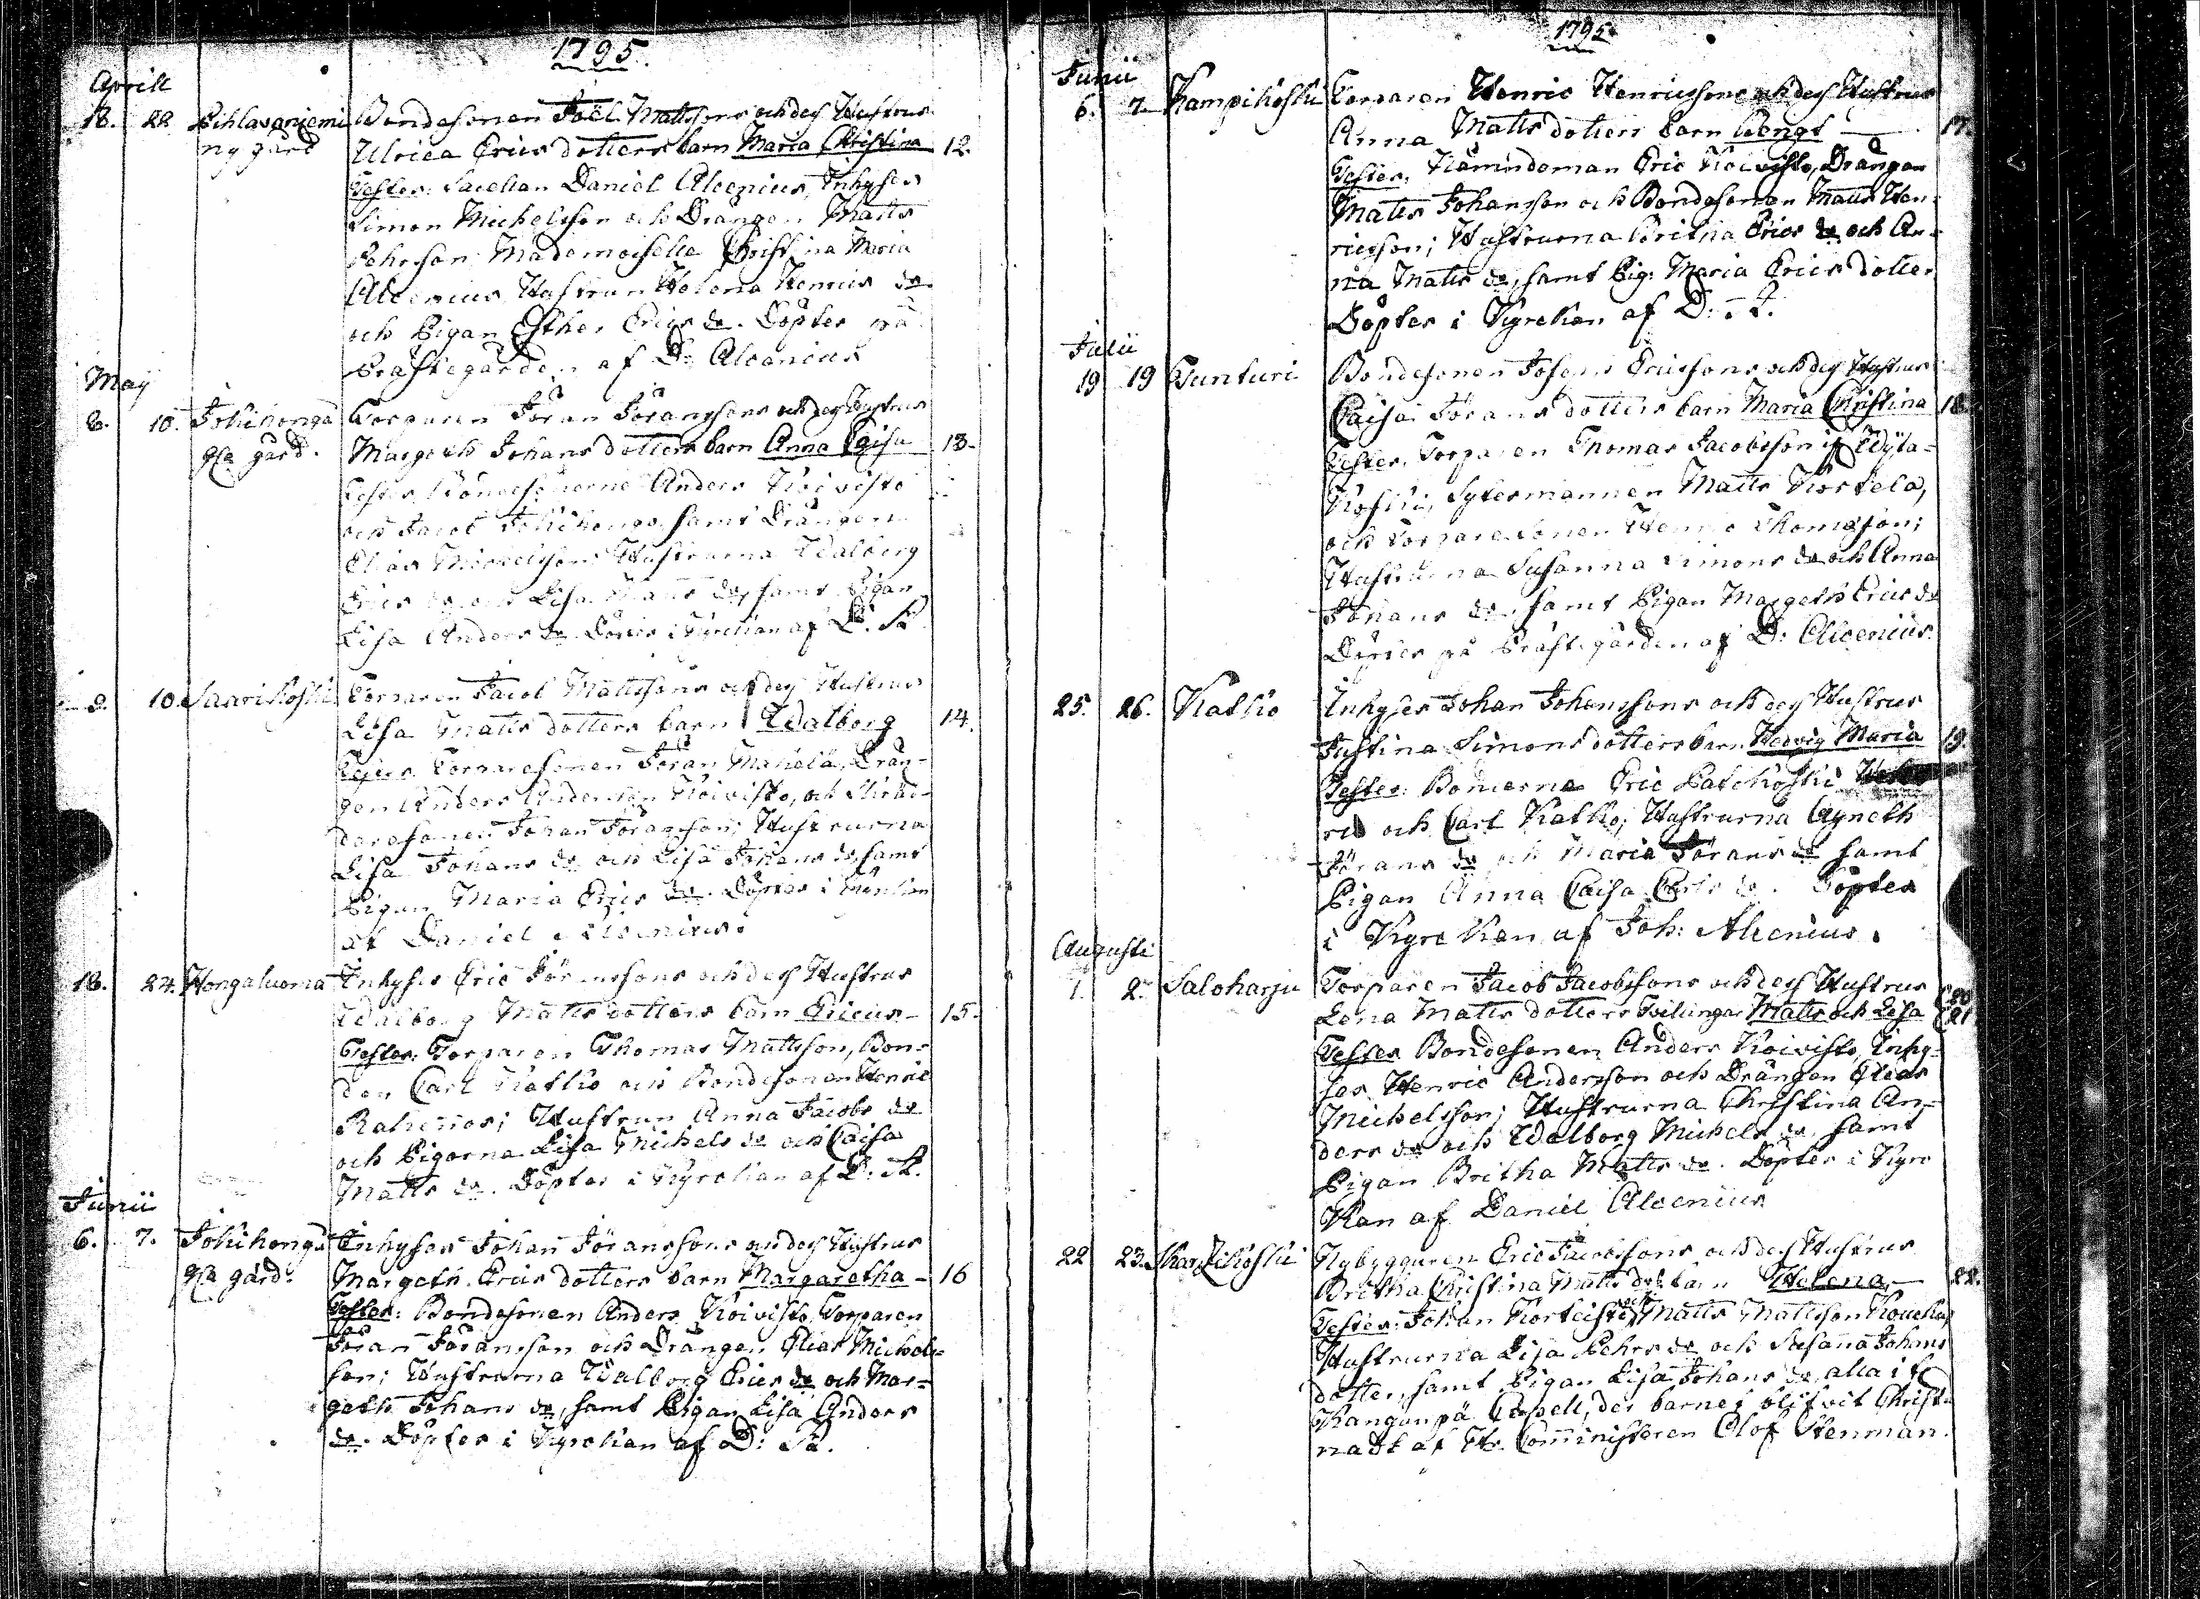 1795.
Aprill
18. 22 Pihlavaniemi Bondesonen Joël Mattssons och dess Hustrus
ny gård Ulrica Erics dotters barn Maria Christina 12.
Testes: Sacellan Daniel Alcenius, Inhyses
Simon Michelsson och Drängen Matts
Pehrsson Mademoiselle Christina Maria
Alcenius Hustrun Helena Henrics dr
och Pigan Esther Erics dr. Döptes på
Prästegården af D. Alcenius
May
8. 10. Jokihonga Torparen Jöran Jöranssons och dess Hustrus
gla gård. Margeth Johans dotters barn Anna Caisa 13.
Testes Bondesönerne Anders Koivisto
och Jacob Jokihonga, samt Drängen
Elias Michelsson; Hustrurna Walborg
Erics dr och Lisa Matts dr, samt Pigan
Lisa Anders dr. Döptes i Kyrckan af D. A.
9. 10. Saarikoski Torparen Jacob Mattssons och dess Hustrus
Lisa Matts dotters barn Walborg 14.
Testes. Torparesonen Jöran Mahela, Drän-
gen Anders Andersson Koivisto, och Skräd-
daresonen Johan Jöransson; Hustrurna
Lisa Johans dr och Lisa Johans dr, samt
Pigan Maria Erics dr. Döptes i Kyrckan
af Daniel Alcenius.
18. 24. Hongaluoma Inhyses Eric Jöranssons och dess Hustrus
Walborg Matts dotters barn Ericus - 15.
Testes: Torparen Thomas Mattsson, Bon-
den Carl Katko och Bondesonen Henric
; Hustrun Anna Jacobs dr
och Pigorna Lisa Michels dr och Caisa
Matts dr. Döptes i Kyrckan af D. A.
Junii
6. 7. Jokihonga Inhyses Johan Jöranssons och dess Hustrus
gla gård. Margeth Erics dotters barn Margaretha - 16
Testes: Bondesonen Anders Koivisto Torparen
Jöran Jöransson och Drängen Elias Michels-
son; Hustrurna Walborg Erics dr och Mar-
geth Johans dr, samt Pigan Lisa Anders
dr. Döptes i Kyrckan af D: A.
1795.
Junii
6. 7. Kampikoski Torparen Henric Henricssons och dess Hustrus
Anna Matts dotters barn Bengt 17.
Testes. Nämndeman Eric Koivisto, Drängen
Matts Johansson och Bondesonen Matts Hen-
ricsson; Hustrurna Britha Erics dr och An-
na Matts dr, samt Pig: Maria Erics dotter
Döptes i Kyrckan af D: A.
Julii
19 19 Tunturi Bondesonen Josephs Ericssons och dess Hustrus
Caisa Jörans dotters barn Maria Christina 18.
Testes. Torparen Thomas Jacobsson if Wyla-
koski, Sytesmannen Matts Kortela,
och Torparesonen Henric Thomasson;
Hustrurna Susanna Simons dr och Anna
Johans dr, samt Pigan Margeth Erics dr
Döptes på Prästegården af D: Alcenius.
25. 26. Katko Inhyses Johan Johanssons och dess Hustrus
Justina Simons dotters barn Hedvig Maria 19.
Testes: Bönderna Eric Patokoski
och Carl Katko; Hustrurna Agneth
Jörans dr och Maria Jörans dr samt
Pigan Anna Caisa Carls dr. Döptes
i Kyrckan af Joh: Alcenius.
Augusti
1. 2. Saloharju Torparen Jacob Jacobssons och dess Hustrus
Lena Matts dotters Tvilingar Matts och Lisa 20 21
Testes Bondesonen Anders Koivisto, Inhy-
ses Henric Andersson och Drängen Elias
Michelsson; Hustrurna Christina An-
ders dr och Walborg Michels dr, samt
Pigan Britha Matts dr. Döptes i Kyrc
kan af Daniel Alcenius
22 23. Nybyggaren Eric Jacobssons och dess Hustrus
Britha Christina Matts dr barn Helena 22.
Testes: Johan och Matts Mattsson
Hustrurna Lisa Pehrs dr och Susanna Johans
dotter, samt Pigan Lisa Johans dr, alla i fr
Kangunpä Capell, der barnet blifvit Christ-
nadt af Hr. Comministeren Olof Stenman.